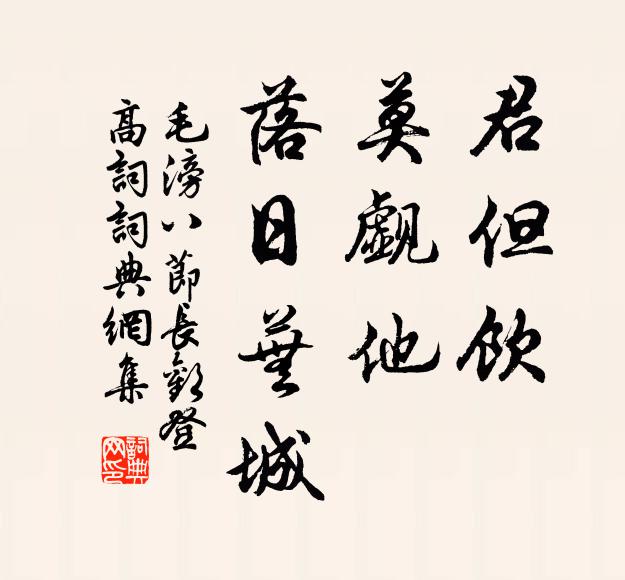 君但飲
莫覷他
落日蕪城
毛滂八節長歡登
高詞詞典網集
詞典網印